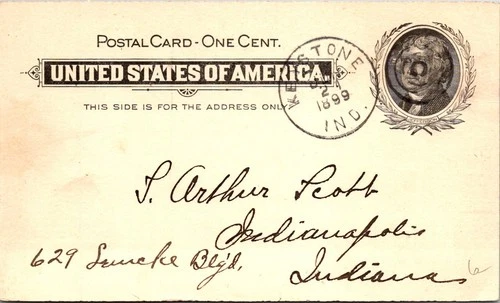 POSTAL CARD - ONE CENT.
UNITED STATES OF AMERICA.
THIS SIDE IS FOR THE ADDRESS ONLY
KEYSTONE
1899
IND.
Arthur Scott
Indianapolis
629 Bldg,
Indiana
6